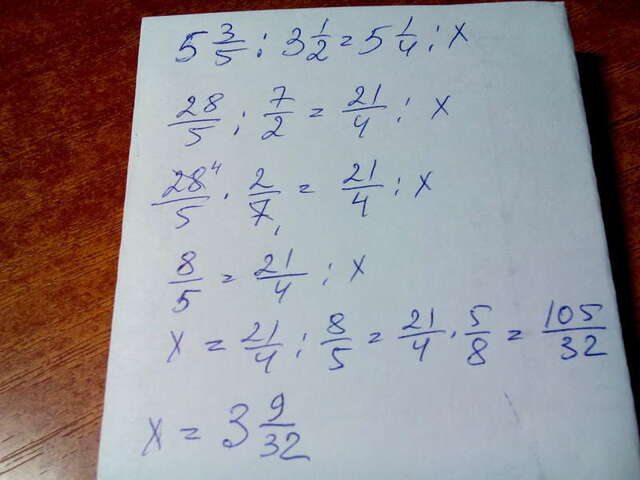 5 3/5 : 3 1/2 = 5 1/4 : x
28/5 : 7/2 = 21/4 : x
28⁴/5 · 2/7₁ = 21/4 : x
8/5 = 21/4 : x
x = 21/4 : 8/5 = 21/4 · 5/8 = 105/32
x = 3 9/32